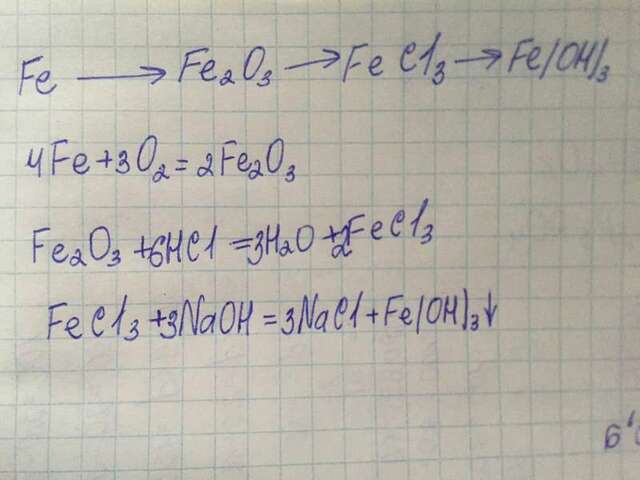 Fe → Fe₂O₃ → FeCl₃ → Fe(OH)₃
4Fe + 3O₂ = 2Fe₂O₃
Fe₂O₃ + 6HCl = 3H₂O + 2FeCl₃
FeCl₃ + 3NaOH = 3NaCl + Fe(OH)₃↓